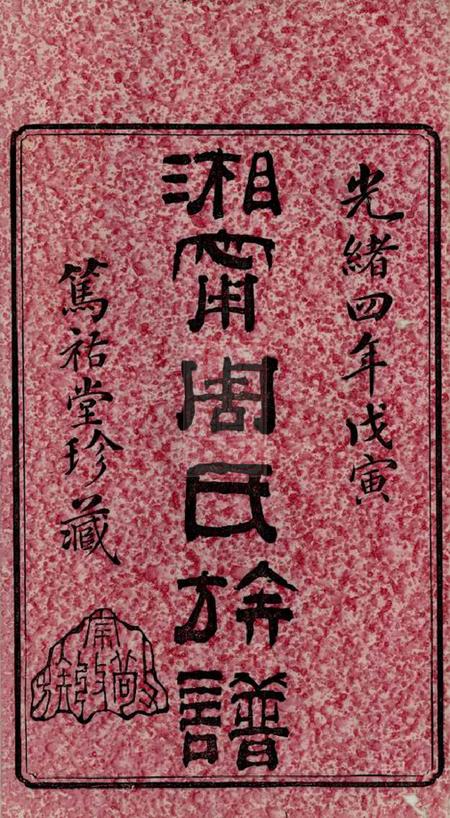 光緒四年戊寅
湘甯周氏族譜
篤祜堂珍藏